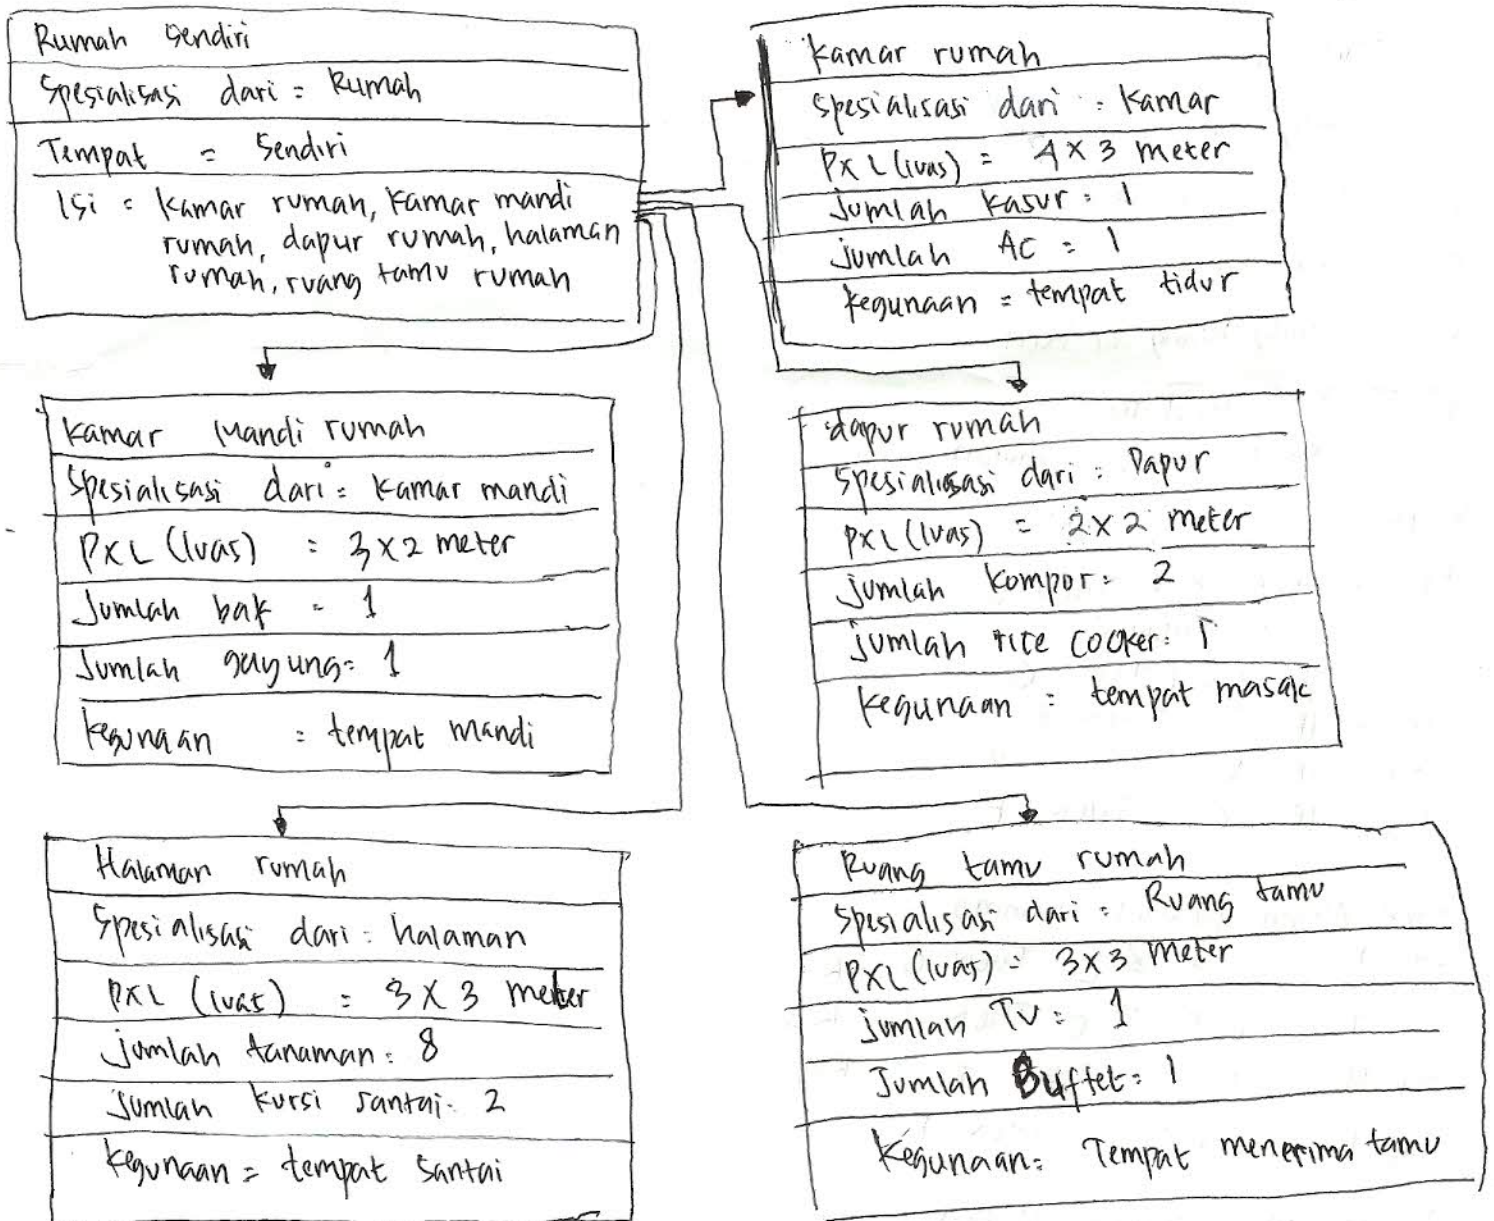 Rumah Sendiri
Spesialisasi dari = Rumah
Tempat = Sendiri
Isi = kamar rumah, kamar mandi
rumah, dapur rumah, halaman
rumah, ruang tamu rumah
kamar rumah
Spesialisasi dari = kamar
PXL (luas) = 4 X 3 meter
Jumlah kasur = 1
Jumlah AC = 1
kegunaan = tempat tidur
kamar Mandi rumah
Spesialisasi dari = kamar mandi
PXL (luas) = 3 X 2 meter
Jumlah bak = 1
Jumlah gayung = 1
kegunaan = tempat mandi
dapur rumah
Spesialisasi dari = Dapur
PXL (luas) = 2 X 2 meter
jumlah kompor = 2
jumlah rice cooker = 1
kegunaan = tempat masak
Halaman rumah
Spesialisasi dari = halaman
PXL (luas) = 3 X 3 meter
jumlah tanaman = 8
Jumlah kursi santai = 2
kegunaan = tempat santai
Ruang tamu rumah
Spesialisasi dari = Ruang tamu
PXL (luas) = 3 X 3 Meter
jumlah TV = 1
Jumlah Buffet = 1
Kegunaan = Tempat menerima tamu